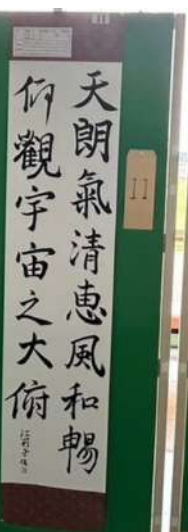 天朗氣清恵風和暢
仰觀宇宙之大俯
11